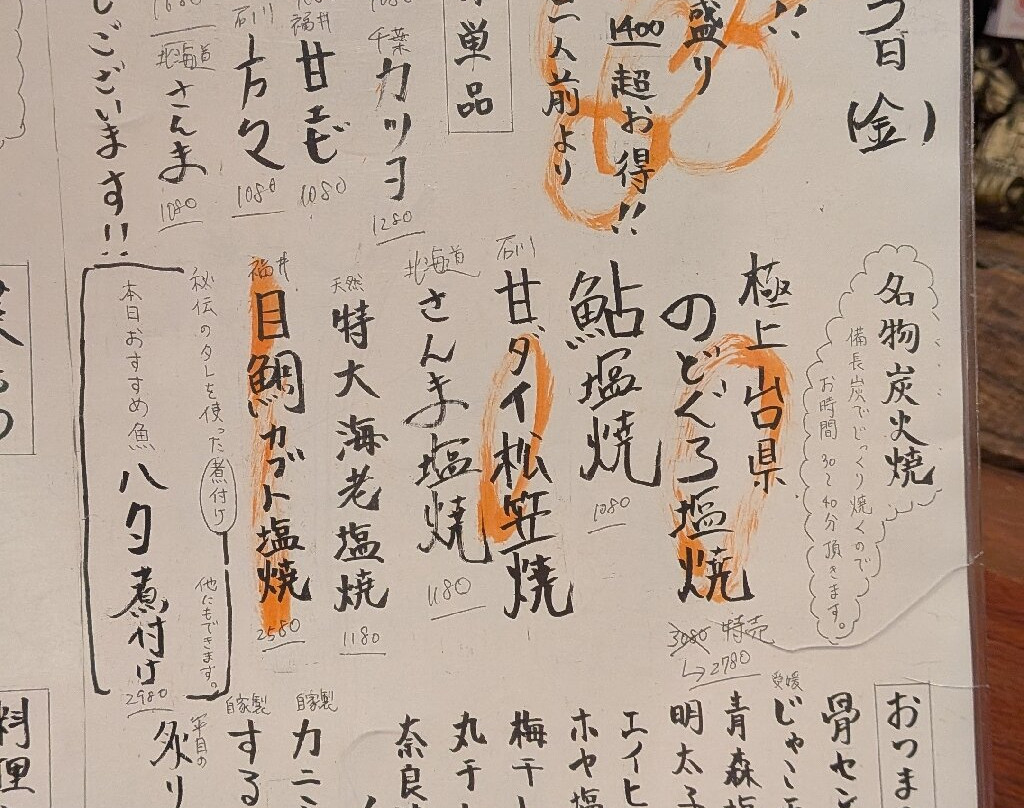 日(金)
!!
盛り
1400 超お得!!
二人前より
単品
千葉 カツヲ 1280
福井 甘エビ 1080
石川 1080
北海道 さんま 1080
ございます!!
名物炭火焼
備長炭でじっくり焼くので
お時間30〜40分頂きます。
極上 山口県
のどぐろ塩焼
3080 特売
→2780
鮎塩焼 1080
石川 甘ダイ松笠焼
北海道 さんま塩焼 1180
天然 特大海老塩焼 1180
福井 目鯛カブト塩焼 2580
秘伝のタレを使った煮付け 他にもできます。
本日おすすめ魚 ハタ煮付け 2980
おつま
骨セン
愛媛 じゃこ
青森塩
明太子
エイヒ
ホヤ塩
梅干し
丸干し
奈良
自家製 カニ
自家製 する
炙り
料理